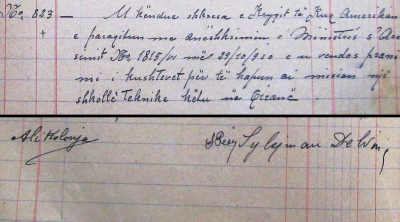 No. 823 — U këndue shkresa e Kryqit të Kuq Amerikan
e paraqitun me anëshkrimin e Ministris s' Ar-
simit No 1815/VI më 29/10/920 e u vendos prani-
mi i kushtevet për të hapun ai mision një
shkollë teknike këtu në Tiranë.
Ali Kolonja
Sylejman Delvina